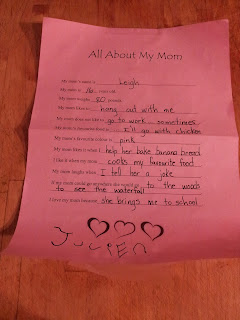 All About My Mom
My mom's name is Leigh
My mom is years old.
My mom weighs 80 pounds.
My mom likes to hang out with me
My mom does not like to go to work sometimes
My mom's favourite food is Kd go with chicken
My mom's favourite colour is pink
My mom likes it when I help her bake banana bread
I like it when my mom cooks my favourite food
My mom laughs when I tell her a joke
If my mom could go anywhere she would go to the woods
to see the waterfall
I love my mom because she brings me to school